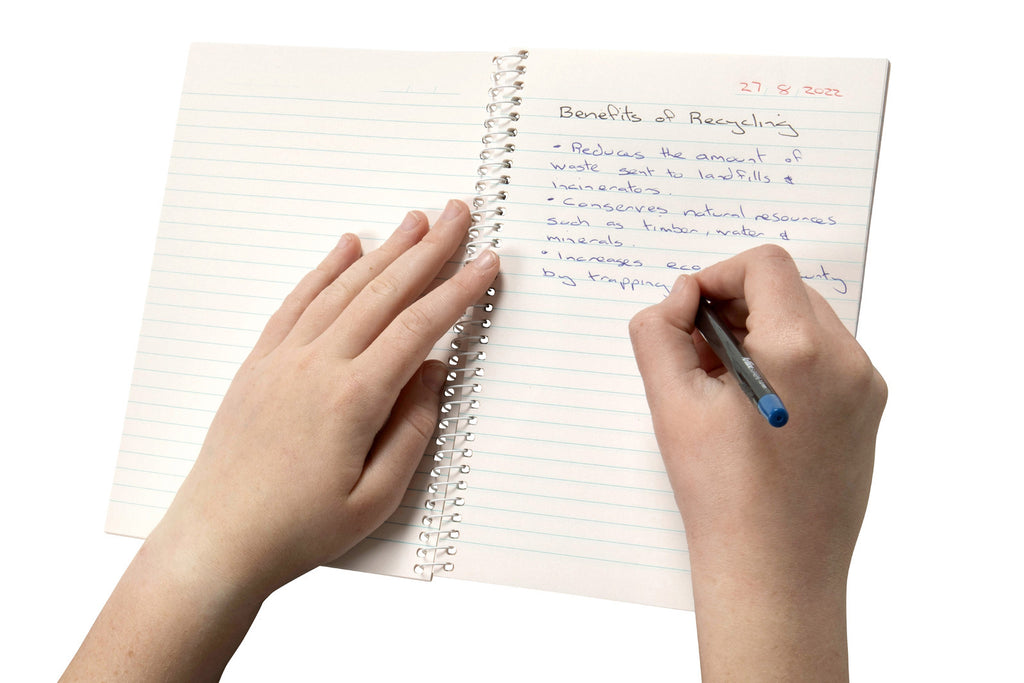 27 8 2022
Benefits of Recycling
• Reduces the amount of
waste sent to landfills &
incinerators.
• Conserves natural resources
such as timber, water &
minerals.
• Increases
by trapping